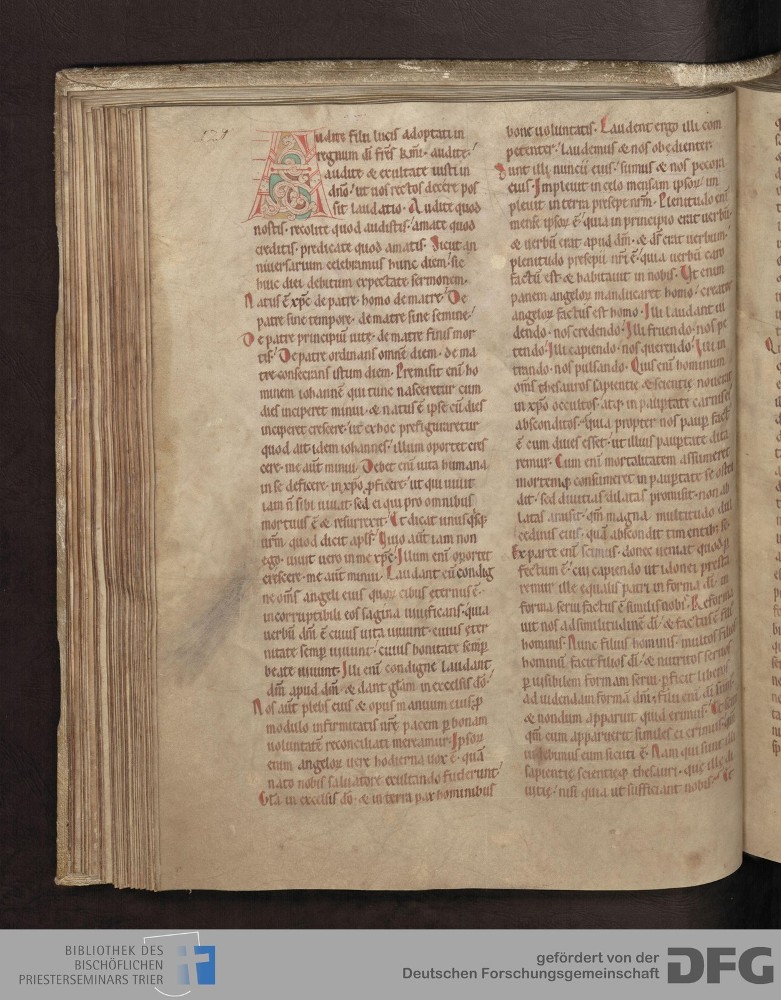 Audite filii lucis adoptati in
regnum di frēs kmi. audite.
audite & exultate iusti in
dno. ut uos rectos decere pos
sit laudatio. Audite quod
nostis. recolite quod audistis. amate quod
creditis. predicate quod amatis. Sicut an
niuersarium celebramus hunc diem. sic
huic diei debitum expectate sermonem.
Natus ē xpc de patre. homo de matre. De
patre sine tempore. de matre sine semine.
De patre principiū uite. de matre finis mor
tis. De patre ordinans omnē diem. de ma
tre consecrans istum diem. Premisit enī ho
minem iohannē qui tunc nasceretur cum
dies inciperet minui. & natus ē ipse cū dies
inciperet crescere. ut ex hoc prefiguraretur
quod ait idem iohannes. illum oportet cres
cere. me aūt minui. Debet enī uita humana
in se deficere. in xpo proficere. ut qui uiuit
iam n sibi uiuat. sed ei qui pro omnibus
mortuus ē & resurrexit. Et dicat unusqsq
urm. quod dicit apls. Viuo aūt iam non
ego. uiuit uero in me xpc. Illum enī oportet
crescere. me aūt minui. Laudant eū condig
ne oms angeli eius quor cibus eternus ē.
incorruptibili eos sagina uiuificans. quia
uerbū dni ē cuius uita uiuunt. cuius eter
nitate semp uiuunt. cuius bonitate semp
beate uiuunt. Illi enī condigne laudant
dm apud dm. & dant glam in excelsis do.
Nos aūt plebs eius & opus manuum eius. p
modulo infirmitatis nre pacem p bonam
uoluntatē reconciliati mereamur. Ipsor
enim angelor uere hodierna uox ē. quā
nato nobis saluatore exultando fuderunt.
Gla in excelsis do. & in terra pax hominibus
bone uoluntatis. Laudent ergo illi com
petenter. laudemus & nos obedienter.
Sunt illi nuncii eius. simus & nos pecora
eius. Impleuit in celo mensam ipsor. im
pleuit in terra presepe nrm. Plenitudo enī
mense ipsor ē. quia in principio erat uerbū.
& uerbū erat apud dm. & ds erat uerbum.
plenitudo presepii nri ē. quia uerbū caro
factū est. & habitauit in nobis. Ut enim
panem angelor manducaret homo. creator
angelor factus est homo. Illi laudant ui
dendo. nos credendo. Illi fruendo. nos pe
tendo. Illi capiendo. nos querendo. Illi in
trando. nos pulsando. Quis enī hominum
oms thesauros sapientie & scientie nouerit
in xpo occultos. atq in paupertate carnis ei
absconditos. Quia propter nos paup factus
ē cum diues esset. ut illius paupertate dita
remur. Cum enī mortalitatem assumeret
mortemq consumeret in paupertate se osten
dit. sed diuitias dilatas promisit. non ab
latas amisit. Qm magna multitudo dul
cedinis eius. quā abscondit timentibus se.
Ex parte enī scimus. donec ueniat quod p
fectum ē. cui capiendo ut idonei presta
remur ille equalis patri in forma di. in
forma serui factus ē similis nobis. Reforma
uit nos ad similitudinē di. & factus ē filius
hominis. Vnicus filius hominis. multos filios
hominū facit filios di. & nutritos seruos
p uisibilem formam serui. pficit liberos
ad uidendam formā dni. Filii enī di sumus
& nondum apparuit quid erimus. Scimus
qm cum apparuerit similes ei erimus. qm
uidebimus eum sicuti ē. Nam qui sunt illi
sapientie scientieq thesauri. que ille di
uitie. nisi quia ut sufficiant nobis. Et
BIBLIOTHEK DES
BISCHÖFLICHEN
PRIESTERSEMINARS TRIER
gefördert von der
Deutschen Forschungsgemeinschaft
DFG